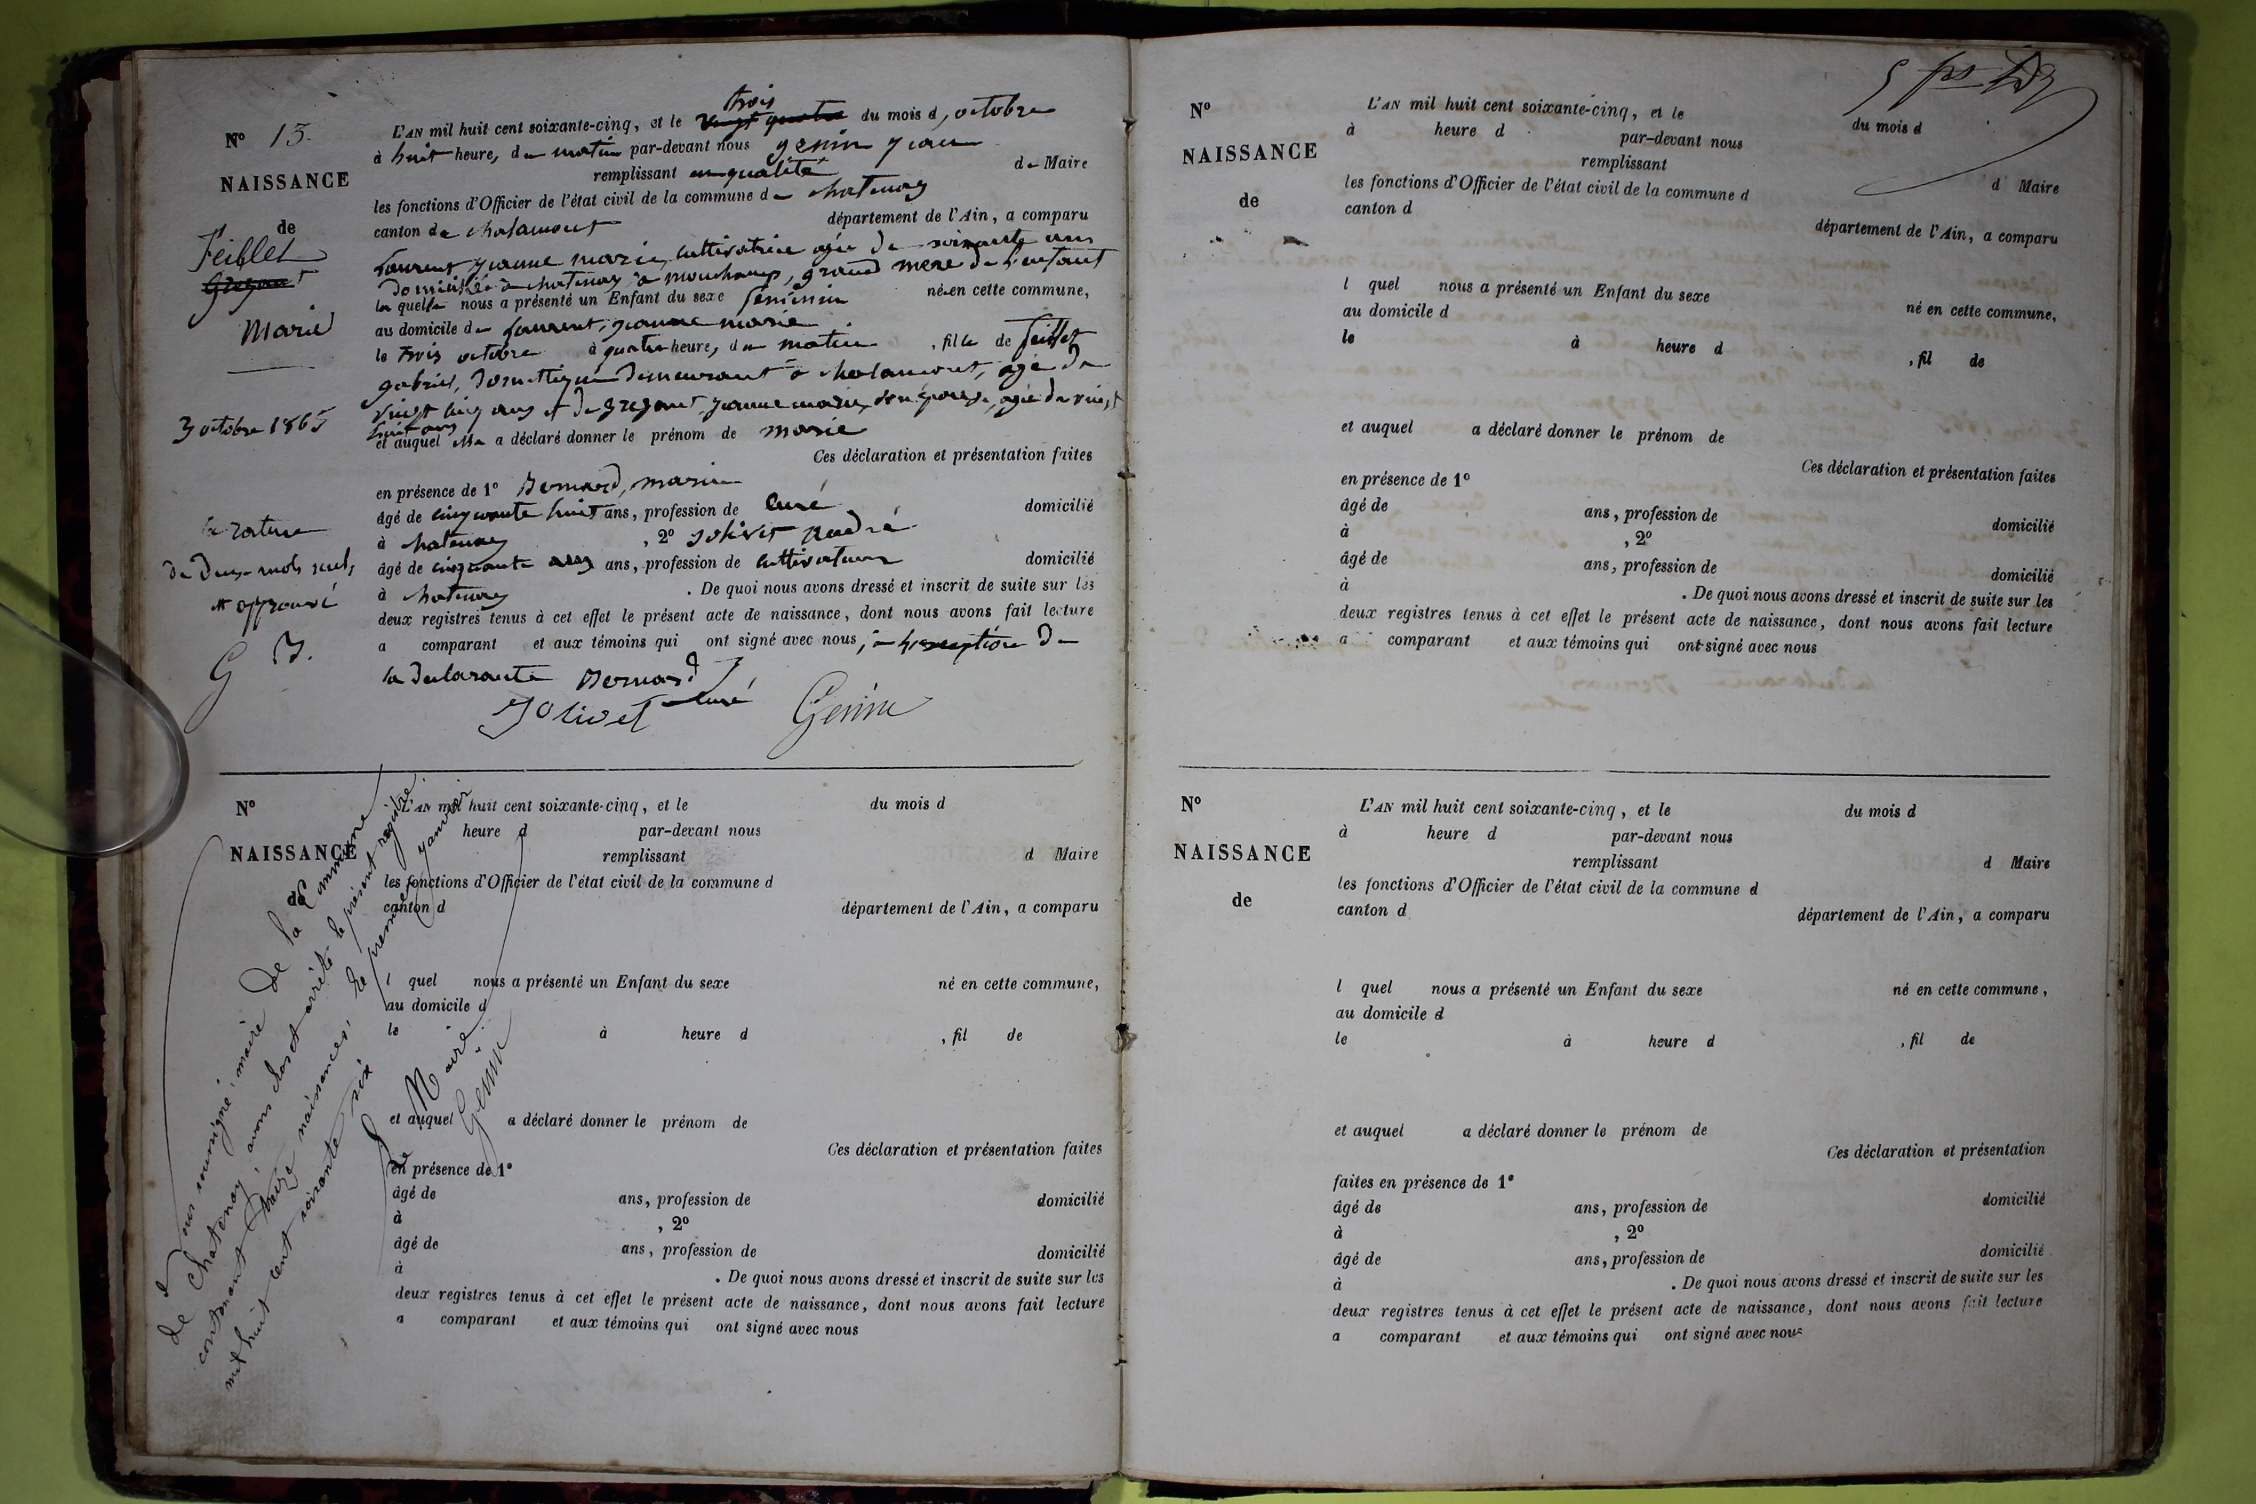 No 13.
NAISSANCE
de
Feillet
Gregont
Marie
3 octobre 1865
la rature
de deux mots nuls
et approuvé
G B.
trois
L'AN mil huit cent soixante-cinq, et le vingt quatre du mois d, octobre
à huit heure, du matin par-devant nous genin jean
remplissant en qualité de Maire
les fonctions d'Officier de l'état civil de la commune de chatenay
canton de chalamont département de l'Ain, a comparu
Laurent jeanne marie, cultivatrice agée de soixante ans
domiciliée à chatenay à mouchamp, grand mere de l'enfant
la quelle nous a présenté un Enfant du sexe féminin née en cette commune,
au domicile de Laurent, jeanne marie
le trois octobre à quatre heure, du matin, fille de feillet
gabriel, domestique demeurant à chalamont, agé de
vingt cinq ans et de gregont, jeanne marie, son épouse, agée de vingt
huit ans
et auquel elle a déclaré donner le prénom de marie
Ces déclaration et présentation faites
en présence de 1o Bernard, marin
âgé de cinquante huit ans, profession de curé domicilié
à chatenay, 2o jolivet andré
âgé de cinquante ans ans, profession de cultivateur domicilié
à chatenay. De quoi nous avons dressé et inscrit de suite sur les
deux registres tenus à cet effet le présent acte de naissance, dont nous avons fait lecture
a comparant et aux témoins qui ont signé avec nous, à l'exception de
la declarante Bernard
curé
Jolivet Genin
No
NAISSANCE
de
L'AN mil huit cent soixante-cinq, et le du mois d
heure d par-devant nous
remplissant d Maire
les fonctions d'Officier de l'état civil de la commune d
canton d département de l'Ain, a comparu
l quel nous a présenté un Enfant du sexe né en cette commune,
au domicile d
le à heure d, fil de
et auquel a déclaré donner le prénom de
Ces déclaration et présentation faites
en présence de 1o
âgé de ans, profession de domicilié
à, 2o
âgé de ans, profession de domicilié
à. De quoi nous avons dressé et inscrit de suite sur les
deux registres tenus à cet effet le présent acte de naissance, dont nous avons fait lecture
a comparant et aux témoins qui ont signé avec nous
Nous soussigné, maire de la Commune
de Chatenay, avons clos et arrêté le présent registre
contenant treize naissances, le premier janvier
mil huit cent soixante six
Le Maire
Genin
No
NAISSANCE
de
L'AN mil huit cent soixante-cinq, et le du mois d
à heure d par-devant nous
remplissant d Maire
les fonctions d'Officier de l'état civil de la commune d
canton d département de l'Ain, a comparu
l quel nous a présenté un Enfant du sexe né en cette commune,
au domicile d
le à heure d, fil de
et auquel a déclaré donner le prénom de
Ces déclaration et présentation faites
en présence de 1o
âgé de ans, profession de domicilié
à, 2o
âgé de ans, profession de domicilié
à. De quoi nous avons dressé et inscrit de suite sur les
deux registres tenus à cet effet le présent acte de naissance, dont nous avons fait lecture
a comparant et aux témoins qui ont signé avec nous
No
NAISSANCE
de
L'AN mil huit cent soixante-cinq, et le du mois d
à heure d par-devant nous
remplissant d Maire
les fonctions d'Officier de l'état civil de la commune d
canton d département de l'Ain, a comparu
l quel nous a présenté un Enfant du sexe né en cette commune,
au domicile d
le à heure d, fil de
et auquel a déclaré donner le prénom de
Ces déclaration et présentation
faites en présence de 1o
âgé de ans, profession de domicilié
à, 2o
âgé de ans, profession de domicilié
à. De quoi nous avons dressé et inscrit de suite sur les
deux registres tenus à cet effet le présent acte de naissance, dont nous avons fait lecture
a comparant et aux témoins qui ont signé avec nous